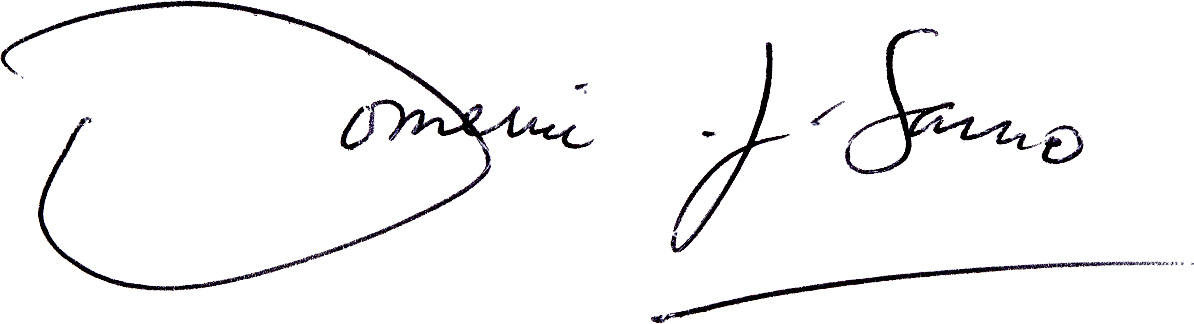 Domenic J. Sarno